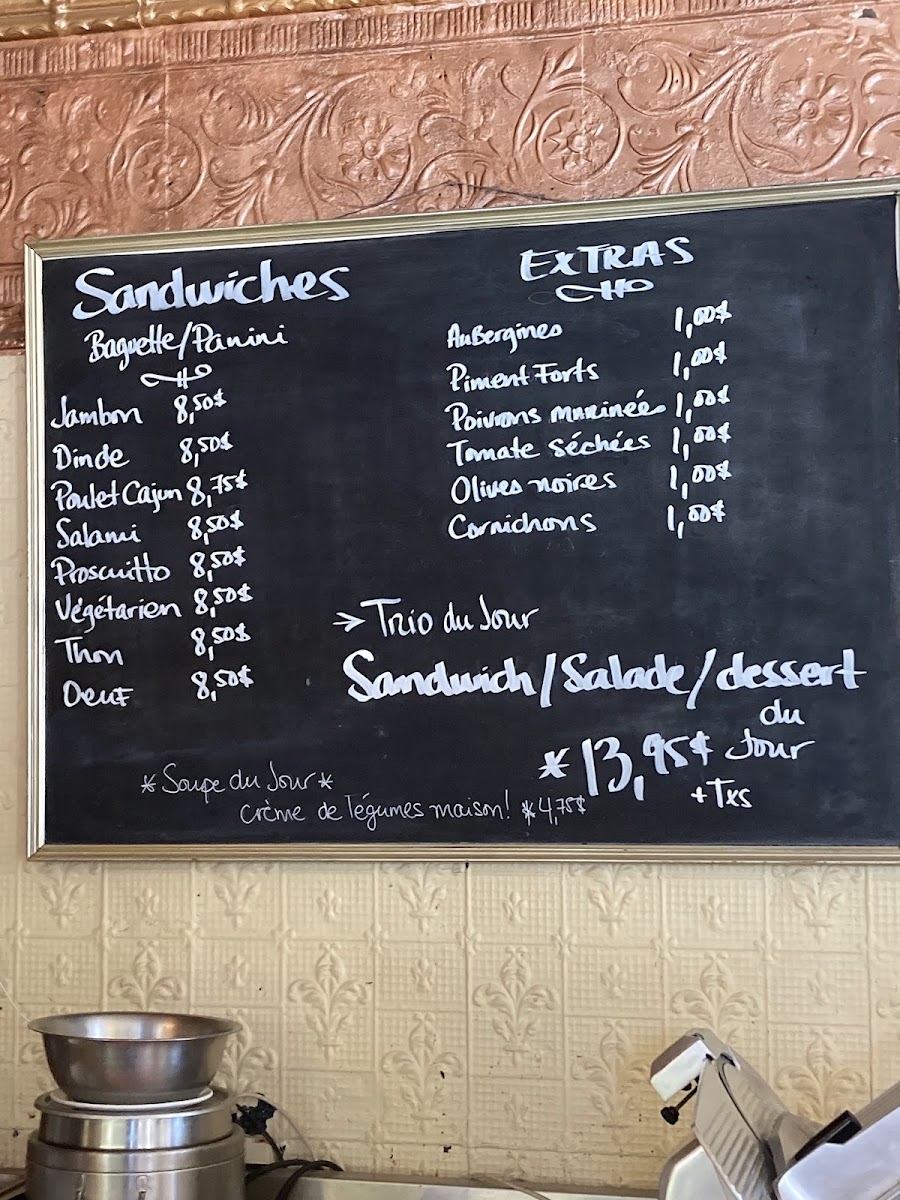 Sandwiches
Baguette/Panini
Jambon 8,50$
Dinde 8,50$
Poulet Cajun 8,75$
Salami 8,50$
Proscuitto 8,50$
Végétarien 8,50$
Thon 8,50$
Oeuf 8,50$
EXTRAS
Aubergines 1,00$
Piment Forts 1,00$
Poivrons marinée 1,00$
Tomate séchées 1,00$
Olives noires 1,00$
Cornichons 1,00$
→ Trio du Jour
Sandwich/Salade/dessert
du
Jour
*13,95$
+Txs
*Soupe du Jour*
Crème de légumes maison! *4,75$